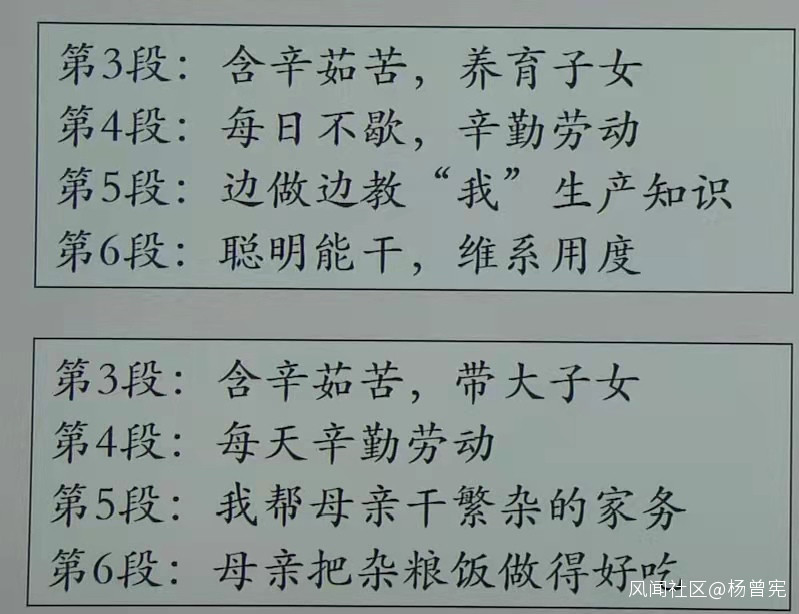 第3段：含辛茹苦，养育子女
第4段：每日不歇，辛勤劳动
第5段：边做边教“我”生产知识
第6段：聪明能干，维系用度
第3段：含辛茹苦，带大子女
第4段：每天辛勤劳动
第5段：我帮母亲干繁杂的家务
第6段：母亲把杂粮饭做得好吃
风闻社区@杨曾宪